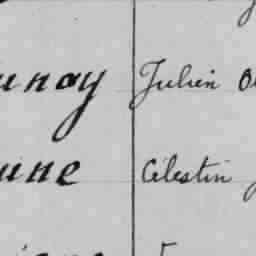 unay Julien
une Célestin